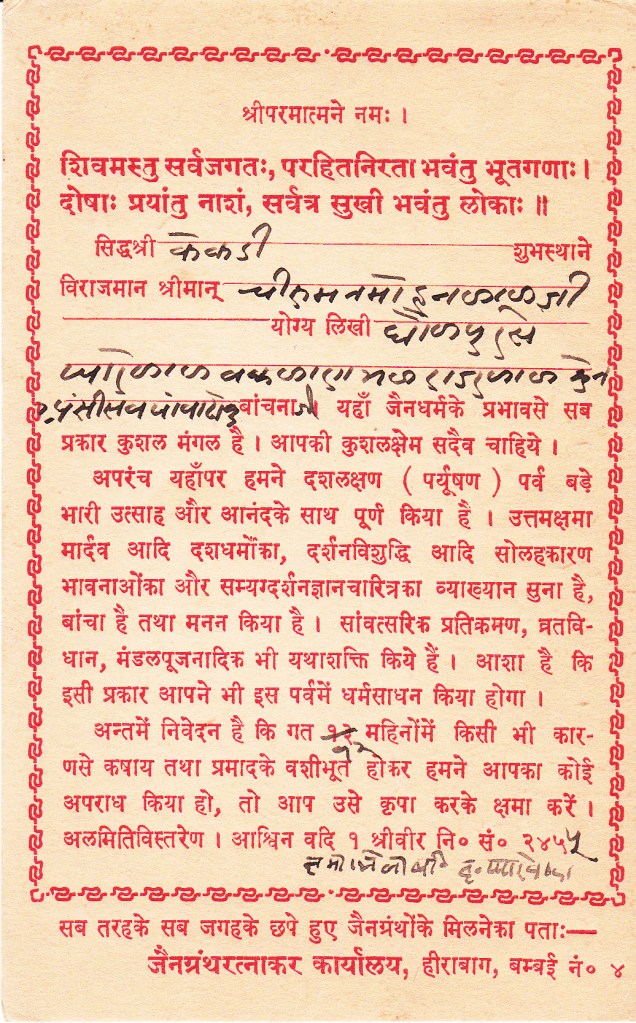 श्रीपरमात्मने नमः ।
शिवमस्तु सर्वजगतः, परहितनिरता भवंतु भूतगणाः।
दोषाः प्रयांतु नाशं, सर्वत्र सुखी भवंतु लोकाः ॥
सिद्धश्री केकडी शुभस्थाने
विराजमान श्रीमान्
योग्य लिखी
बांचना यहाँ जैनधर्मके प्रभावसे सब
प्रकार कुशल मंगल है । आपकी कुशलक्षेम सदैव चाहिये ।
अपरंच यहाँपर हमने दशलक्षण ( पर्यूषण ) पर्व बड़े
भारी उत्साह और आनंदके साथ पूर्ण किया है । उत्तमक्षमा
मार्दव आदि दशधर्मोंका, दर्शनविशुद्धि आदि सोलहकारण
भावनाओंका और सम्यग्दर्शनज्ञानचारित्रका व्याख्यान सुना है,
बांचा है तथा मनन किया है । सांवत्सरिक प्रतिक्रमण, व्रतवि-
धान, मंडलपूजनादिक भी यथाशक्ति किये हैं । आशा है कि
इसी प्रकार आपने भी इस पर्वमें धर्मसाधन किया होगा ।
अन्तमें निवेदन है कि गत १२ महिनोंमें किसी भी कार-
णसे कषाय तथा प्रमादके वशीभूत होकर हमने आपका कोई
अपराध किया हो, तो आप उसे कृपा करके क्षमा करें ।
अलमितिविस्तरेण । आश्विन वदि १ श्रीवीर नि० सं० २४५५
सब तरहके सब जगहके छपे हुए जैनग्रंथोंके मिलनेका पताः—
जैनग्रंथरत्नाकर कार्यालय, हीराबाग, बम्बई नं० ४